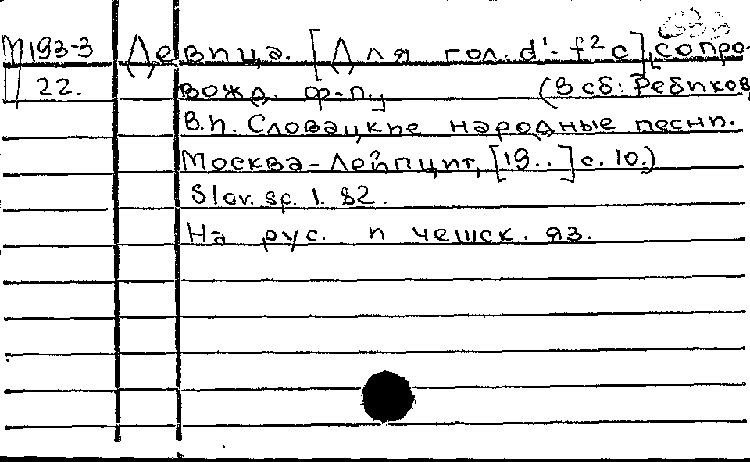 М193-3 Девица. [Для гол. d¹-f²с], сопро-
22. вожд. ф-п., (В сб: Ребиков,
В.И. Словацкие народные песни.
Москва-Лейпциг, [19..] с. 10.)
Slov. sp. I. 82.
На рус. и чешск. яз.